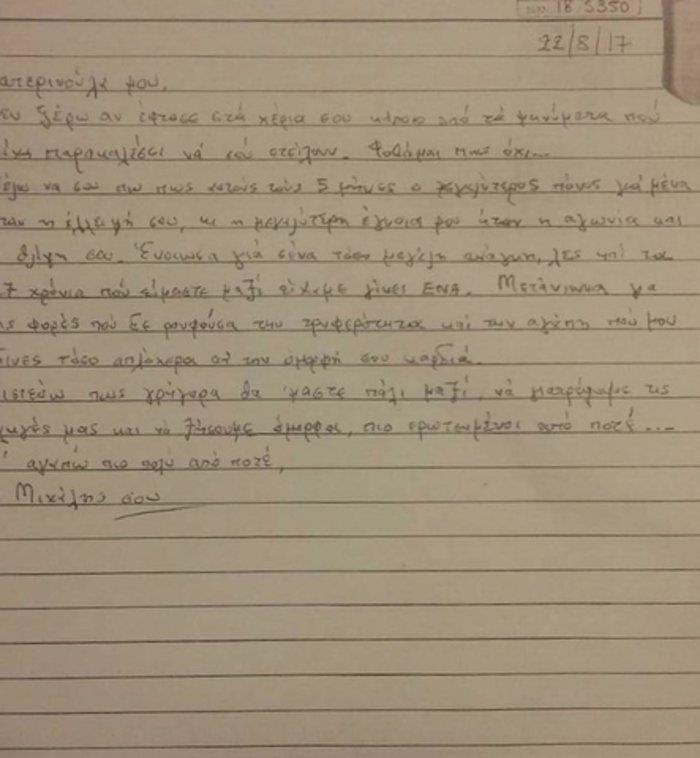 18 5350
22/8/17
ατερινούλα μου,
ξέρω αν έφτασε στα χέρια σου κάποιο από τα μηνύματα πού
παρακαλέσει νά σού στείλουν. Φοβάμαι πως όχι...
να σου πω πως αυτούς τούς 5 μήνες ο μεγαλύτερος πόνος γιά μένα
ταν η έλλειψή σου, κι η μεγαλύτερη έγνοια μου ήταν η αγωνία και
θλίψη σου. Ένοιωσα γιά σένα τόσο μεγάλη ανάγκη, λες καί τα
7 χρόνια πού είμαστε μαζί είχαμε γίνει ΕΝΑ. Μετάνιωσα για
ς φορές πού σε ρουφούσα την τρυφερότητα καί την αγάπη πού μου
δινες τόσο απλόχερα απ την όμορφή σου καρδιά.
ιστεύω πως γρήγορα θα 'μαστε πάλι μαζί, νά γιατρέψουμε τις
πληγές μας και νά ζήσουμε όμορφα, πιο ερωτευμένοι από ποτέ....
αγαπώ πιο πολύ από ποτέ,
Μιχάλης σου